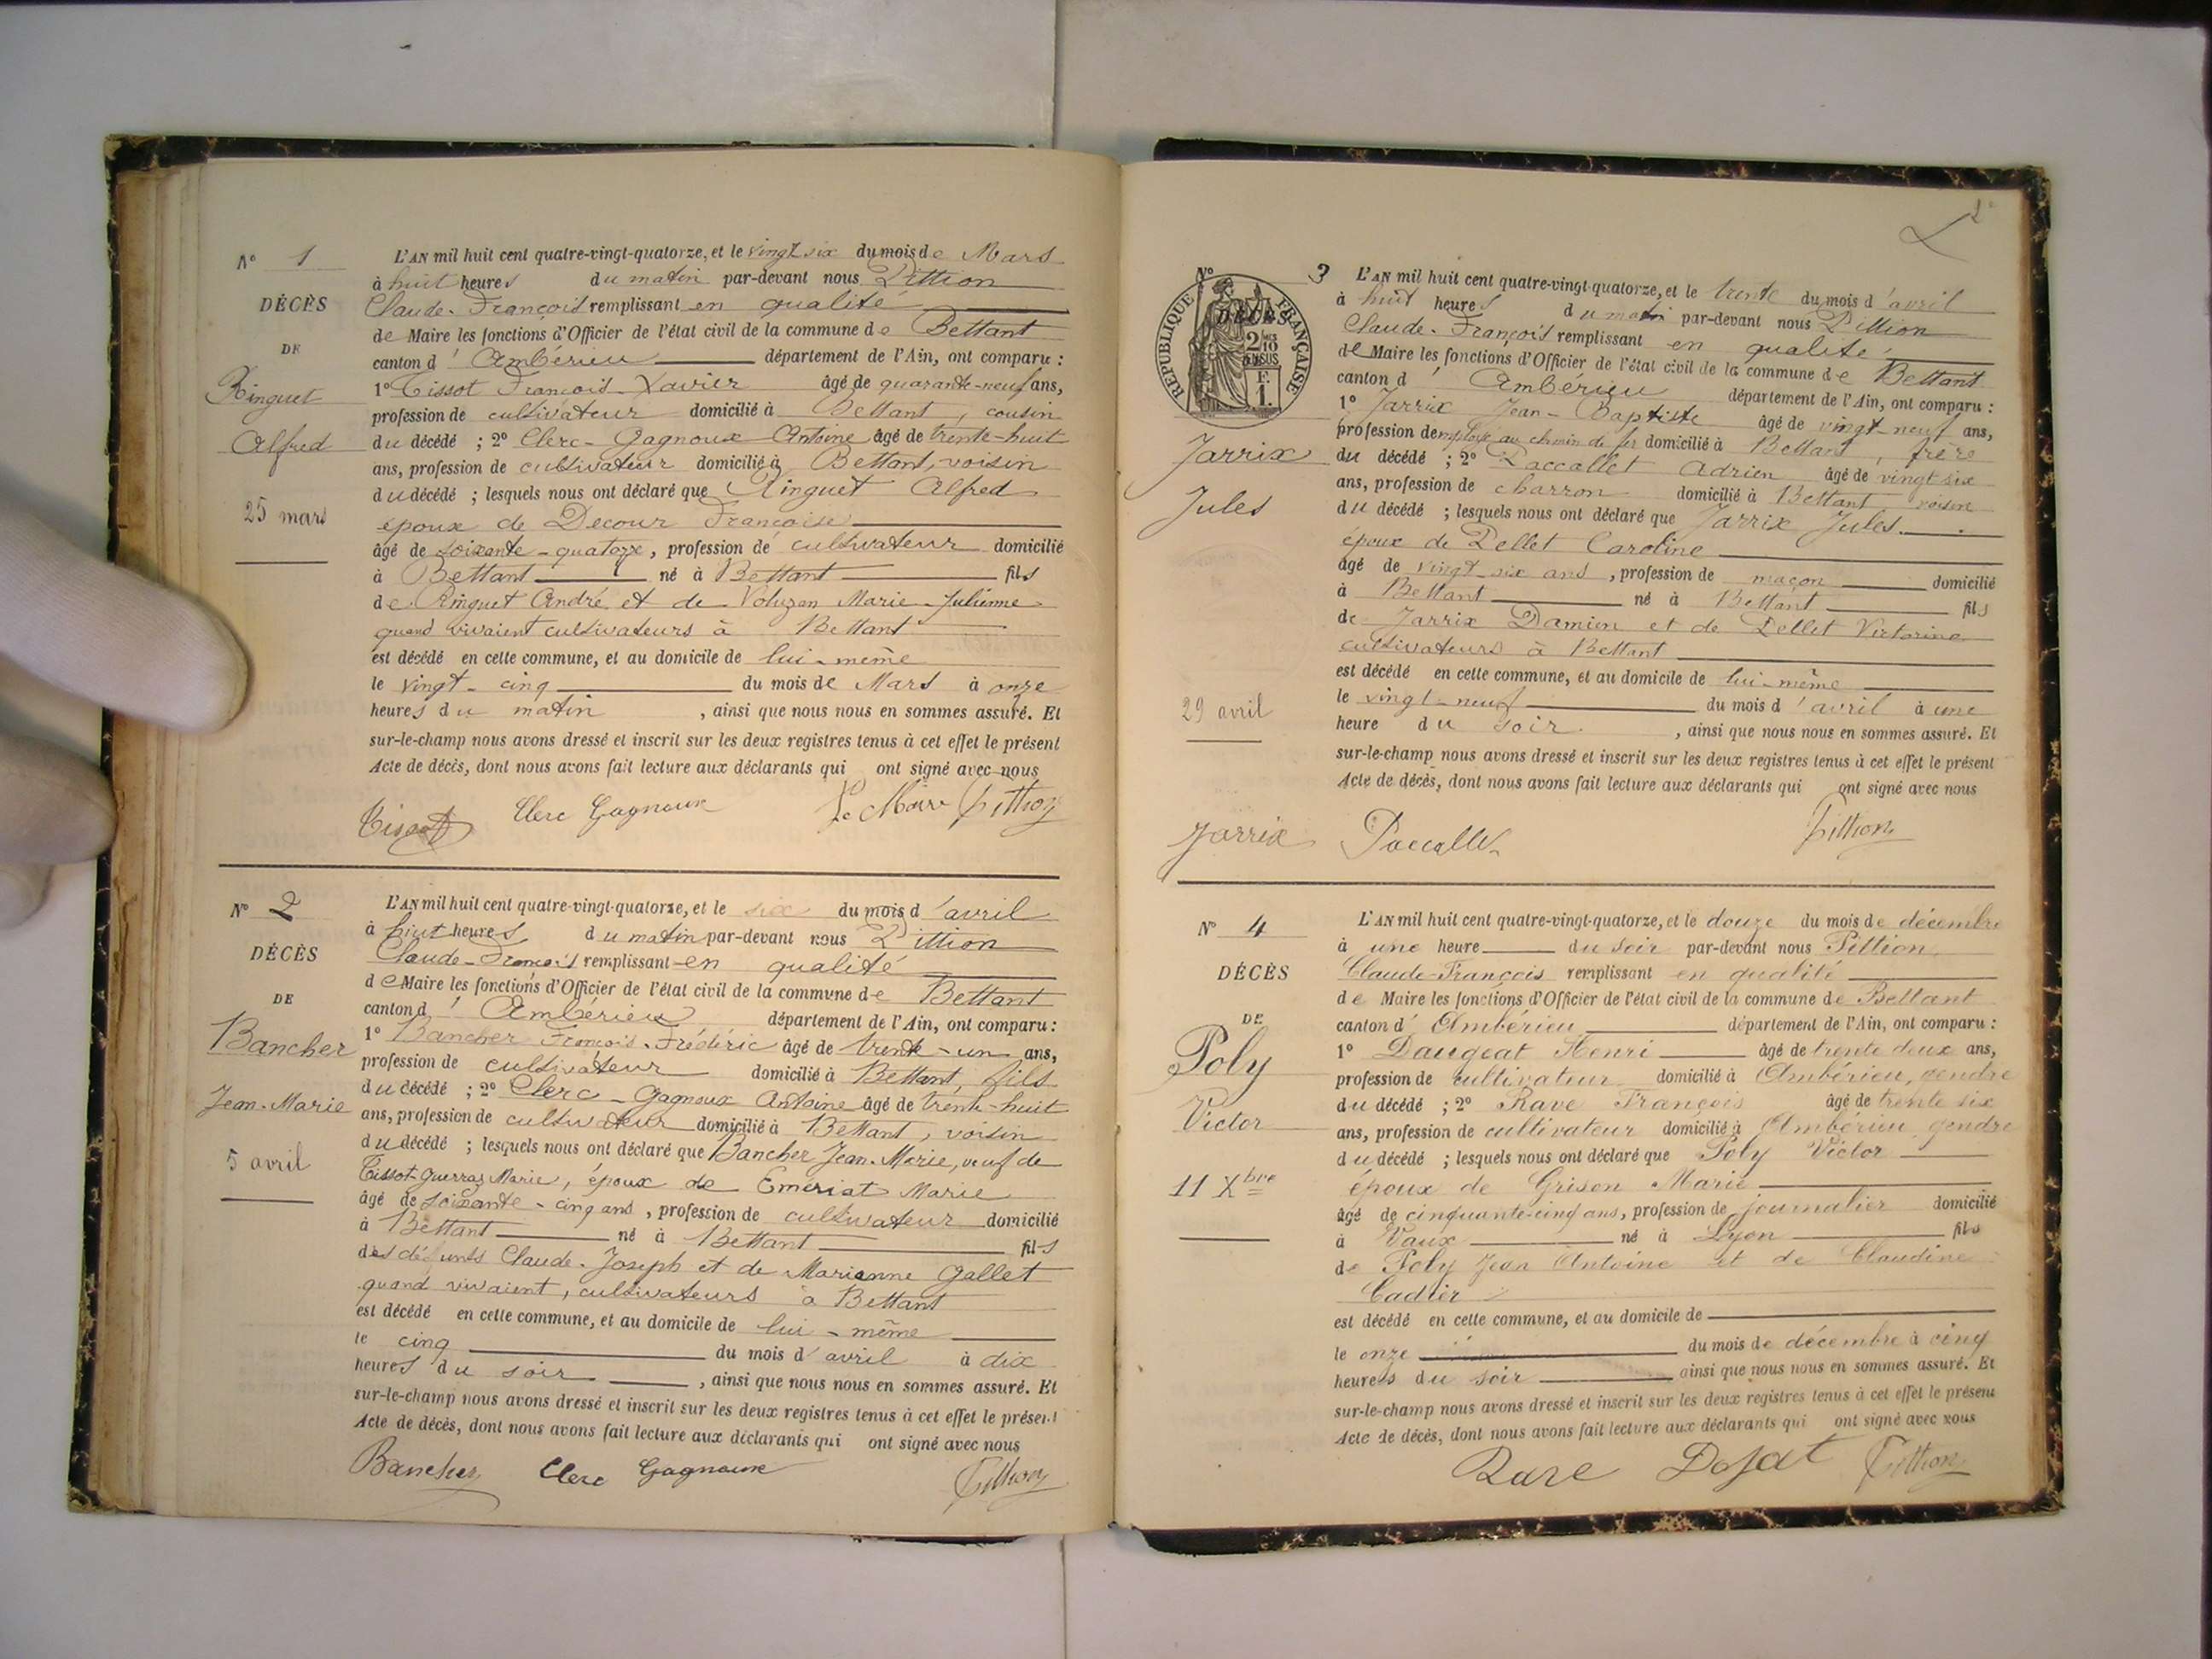 N° 1
DÉCÈS
DE
Ringuet
Alfred
25 mars
L'AN mil huit cent quatre-vingt-quatorze, et le vingt six du mois de Mars
à huit heures du matin par-devant nous Pittion
Claude-François remplissant en qualité
de Maire les fonctions d'Officier de l'état civil de la commune de Bettant
canton d'Ambérieu département de l'Ain, ont comparu :
1° Tissot François-Xavier âgé de quarante-neuf ans,
profession de cultivateur domicilié à Bettant, cousin
du décédé ; 2° Clerc-Gagnoux Antoine âgé de trente-huit
ans, profession de cultivateur domicilié à Bettant, voisin
du décédé ; lesquels nous ont déclaré que Ringuet Alfred
époux de Decour Françoise
âgé de soixante-quatorze, profession de cultivateur domicilié
à Bettant né à Bettant fils
de Ringuet André et de Voluzan Marie-Julienne
quand vivaient cultivateurs à Bettant
est décédé en cette commune, et au domicile de lui-même
le vingt-cinq du mois de Mars à onze
heures du matin, ainsi que nous nous en sommes assuré. Et
sur-le-champ nous avons dressé et inscrit sur les deux registres tenus à cet effet le présent
Acte de décès, dont nous avons fait lecture aux déclarants qui ont signé avec nous
Tissot Clerc Gagnoux Le Maire Pittion
N° 2
DÉCÈS
DE
Bancher
Jean-Marie
5 avril
L'AN mil huit cent quatre-vingt-quatorze, et le six du mois d'avril
à huit heures du matin par-devant nous Pittion
Claude-François remplissant en qualité
de Maire les fonctions d'Officier de l'état civil de la commune de Bettant
canton d'Ambérieu département de l'Ain, ont comparu :
1° Bancher François-Frédéric âgé de trente-un ans,
profession de cultivateur domicilié à Bettant, fils
du décédé ; 2° Clerc-Gagnoux Antoine âgé de trente-huit
ans, profession de cultivateur domicilié à Bettant, voisin
du décédé ; lesquels nous ont déclaré que Bancher Jean-Marie, veuf de
Tissot-Guerraz Marie, époux de Emeriat Marie
âgé de soixante-cinq ans, profession de cultivateur domicilié
à Bettant né à Bettant fils
des défunts Claude-Joseph et de Marianne Gallet
quand vivaient, cultivateurs à Bettant
est décédé en cette commune, et au domicile de lui-même
le cinq du mois d'avril à dix
heures du soir, ainsi que nous nous en sommes assuré. Et
sur-le-champ nous avons dressé et inscrit sur les deux registres tenus à cet effet le présent
Acte de décès, dont nous avons fait lecture aux déclarants qui ont signé avec nous
Bancher Clerc Gagnoux Pittion
N° 3
RÉPUBLIQUE FRANÇAISE
DÉCÈS
2/10
EN SUS
F.
1.
Jarrix
Jules
29 avril
L'AN mil huit cent quatre-vingt-quatorze, et le trente du mois d'avril
à huit heures du matin par-devant nous Pittion
Claude-François remplissant en qualité
de Maire les fonctions d'Officier de l'état civil de la commune de Bettant
canton d'Ambérieu département de l'Ain, ont comparu :
1° Jarrix Jean-Baptiste âgé de vingt-neuf ans,
profession d'employé au chemin de fer domicilié à Bettant, frère
du décédé ; 2° Paccallet Adrien âgé de vingt six
ans, profession de charron domicilié à Bettant voisin
du décédé ; lesquels nous ont déclaré que Jarrix Jules
époux de Pellet Caroline
âgé de vingt-six ans, profession de maçon domicilié
à Bettant né à Bettant fils
de Jarrix Damien et de Pellet Victorine
cultivateurs à Bettant
est décédé en cette commune, et au domicile de lui-même
le vingt-neuf du mois d'avril à une
heure du soir, ainsi que nous nous en sommes assuré. Et
sur-le-champ nous avons dressé et inscrit sur les deux registres tenus à cet effet le présent
Acte de décès, dont nous avons fait lecture aux déclarants qui ont signé avec nous
Jarrix Paccallet Pittion
N° 4
DÉCÈS
DE
Poly
Victor
11 Xbre
L'AN mil huit cent quatre-vingt-quatorze, et le douze du mois de décembre
à une heure du soir par-devant nous Pittion
Claude-François remplissant en qualité
de Maire les fonctions d'Officier de l'état civil de la commune de Bettant
canton d'Ambérieu département de l'Ain, ont comparu :
1° Daugeat Henri âgé de trente deux ans,
profession de cultivateur domicilié à Ambérieu, gendre
du décédé ; 2° Rave François âgé de trente six
ans, profession de cultivateur domicilié à Ambérieu gendre
du décédé ; lesquels nous ont déclaré que Poly Victor
époux de Grison Marie
âgé de cinquante-cinq ans, profession de journalier domicilié
à Vaux né à Lyon fils
de Poly Jean Antoine et de Claudine
Cadier
est décédé en cette commune, et au domicile de
le onze du mois de décembre à cinq
heures du soir ainsi que nous nous en sommes assuré. Et
sur-le-champ nous avons dressé et inscrit sur les deux registres tenus à cet effet le présent
Acte de décès, dont nous avons fait lecture aux déclarants qui ont signé avec nous
Rave Dojat Pittion